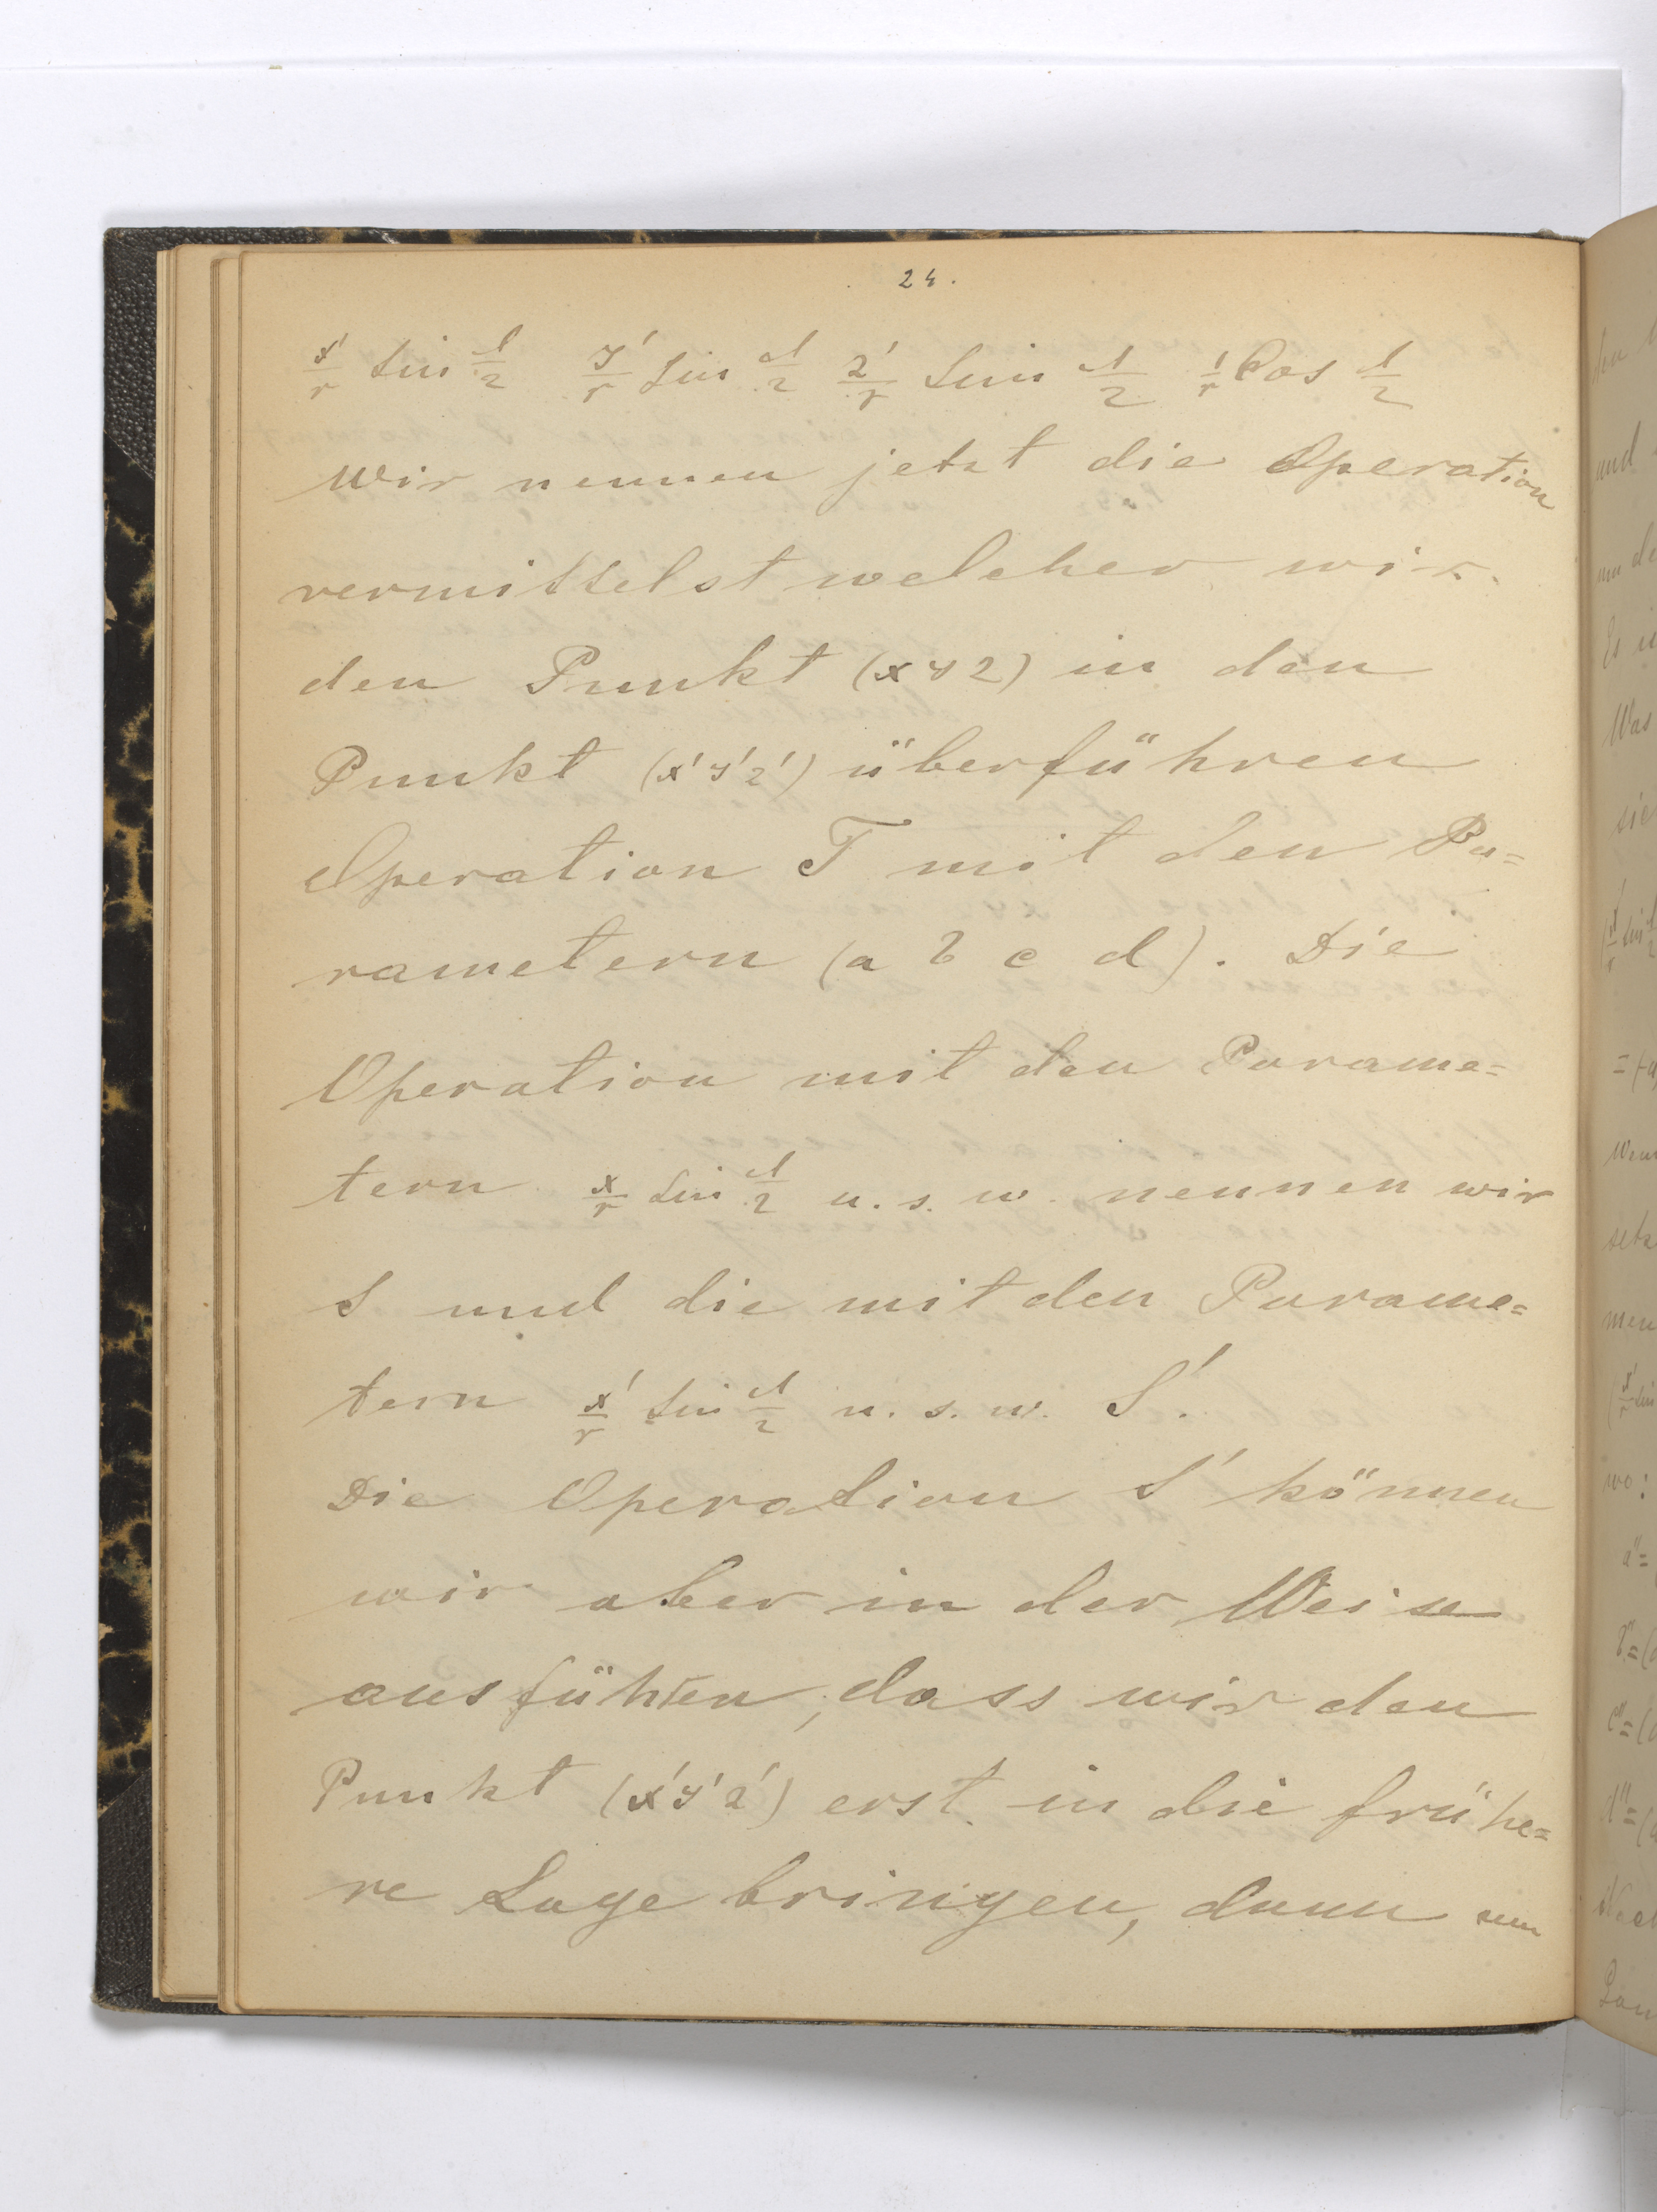 24.
x'/r Sin d/2 y'/r Sin d/2 z'/r Sin d/2 1/r Cos d/2
Wir nennen jetzt die Operation
vermittelst welcher wir
den Punkt (x y z) in den
Punkt (x' y' z') überführen
Operation T mit den Pa=
rametern (a b c d). Die
Operation mit den Parame=
tern x/r Sin d/2 u. s. w. nennen wir
S und die mit den Parame=
tern x'/r Sin d/2 u. s. w. S'.
Die Operation S' können
wir aber in der Weise
ausführen, dass wir den
Punkt (x' y' z') erst in die frühe=
re Lage bringen, dann um